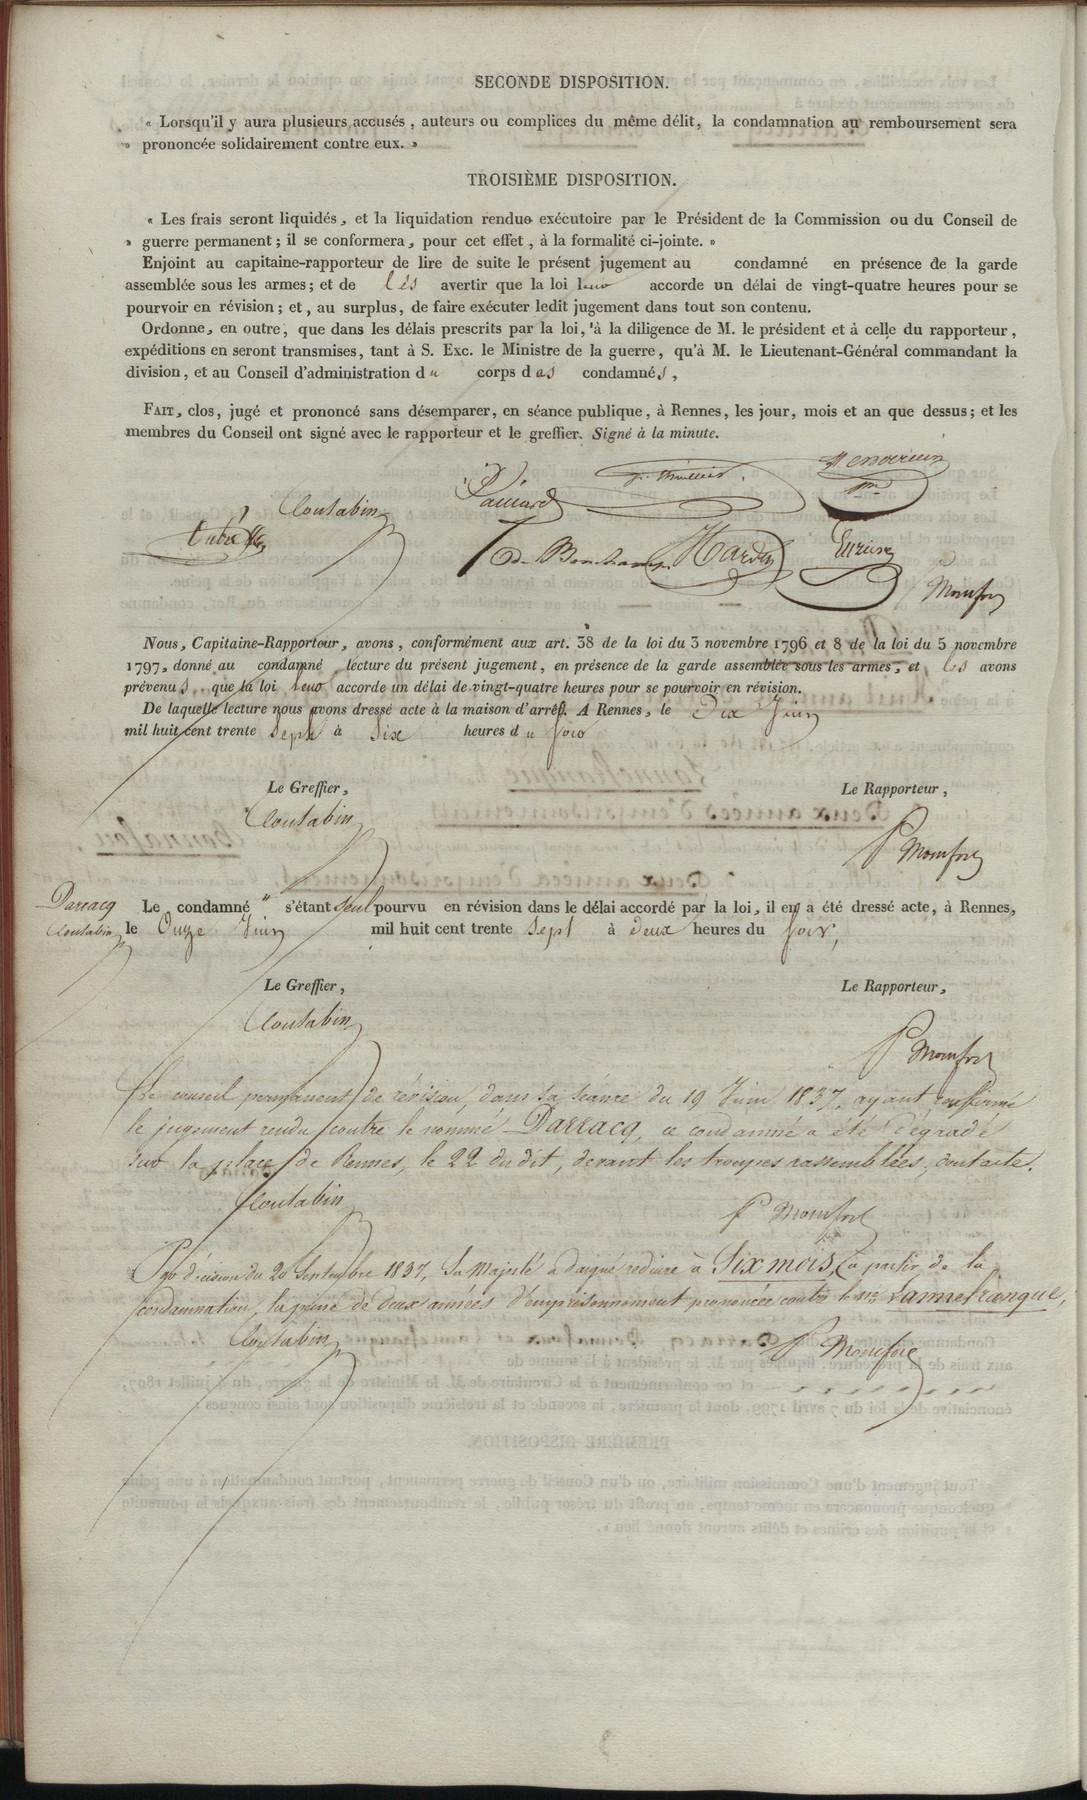 SECONDE DISPOSITION.
« Lorsqu'il y aura plusieurs accusés, auteurs ou complices du même délit, la condamnation au remboursement sera
» prononcée solidairement contre eux. »
TROISIÈME DISPOSITION.
« Les frais seront liquidés, et la liquidation rendue exécutoire par le Président de la Commission ou du Conseil de
» guerre permanent ; il se conformera, pour cet effet, à la formalité ci-jointe. »
Enjoint au capitaine-rapporteur de lire de suite le présent jugement au condamné en présence de la garde
assemblée sous les armes ; et de les avertir que la loi leur accorde un délai de vingt-quatre heures pour se
pourvoir en révision ; et, au surplus, de faire exécuter ledit jugement dans tout son contenu.
Ordonne, en outre, que dans les délais prescrits par la loi, à la diligence de M. le président et à celle du rapporteur,
expéditions en seront transmises, tant à S. Exc. le Ministre de la guerre, qu'à M. le Lieutenant-Général commandant la
division, et au Conseil d'administration du corps des condamnés,
FAIT, clos, jugé et prononcé sans désemparer, en séance publique, à Rennes, les jour, mois et an que dessus ; et les
membres du Conseil ont signé avec le rapporteur et le greffier. Signé à la minute.
Coutabin
Hardy
Momfort
Nous, Capitaine-Rapporteur, avons, conformément aux art. 38 de la loi du 3 novembre 1796 et 8 de la loi du 5 novembre
1797, donné au condamné lecture du présent jugement, en présence de la garde assemblée sous les armes, et les avons
prévenus que la loi leur accorde un délai de vingt-quatre heures pour se pourvoir en révision.
De laquelle lecture nous avons dressé acte à la maison d'arrêt. A Rennes, le Dix Juin
mil huit cent trente sept à six heures du soir
Le Greffier, Le Rapporteur,
Coutabin
P Momfort
Darracq Le condamné " s'étant seul pourvu en révision dans le délai accordé par la loi, il en a été dressé acte, à Rennes,
Coutabin le Onze Juin mil huit cent trente sept à deux heures du soir,
Le Greffier, Le Rapporteur,
Coutabin
P Momfort
Le conseil permanent de révision, dans sa séance du 19 Juin 1837, ayant confirmé
le jugement rendu contre le nommé Darracq, ce condamné a été dégradé
sur la place de Rennes, le 22 dudit, devant les troupes rassemblées, dont acte.
Coutabin
P Momfort
Par décision du 20 Septembre 1837, Sa Majesté a daigné réduire à Six mois, à partir de la
condamnation, la peine de deux années d'emprisonnement prononcée contre le né Lannefranque,
Coutabin
P Momfort